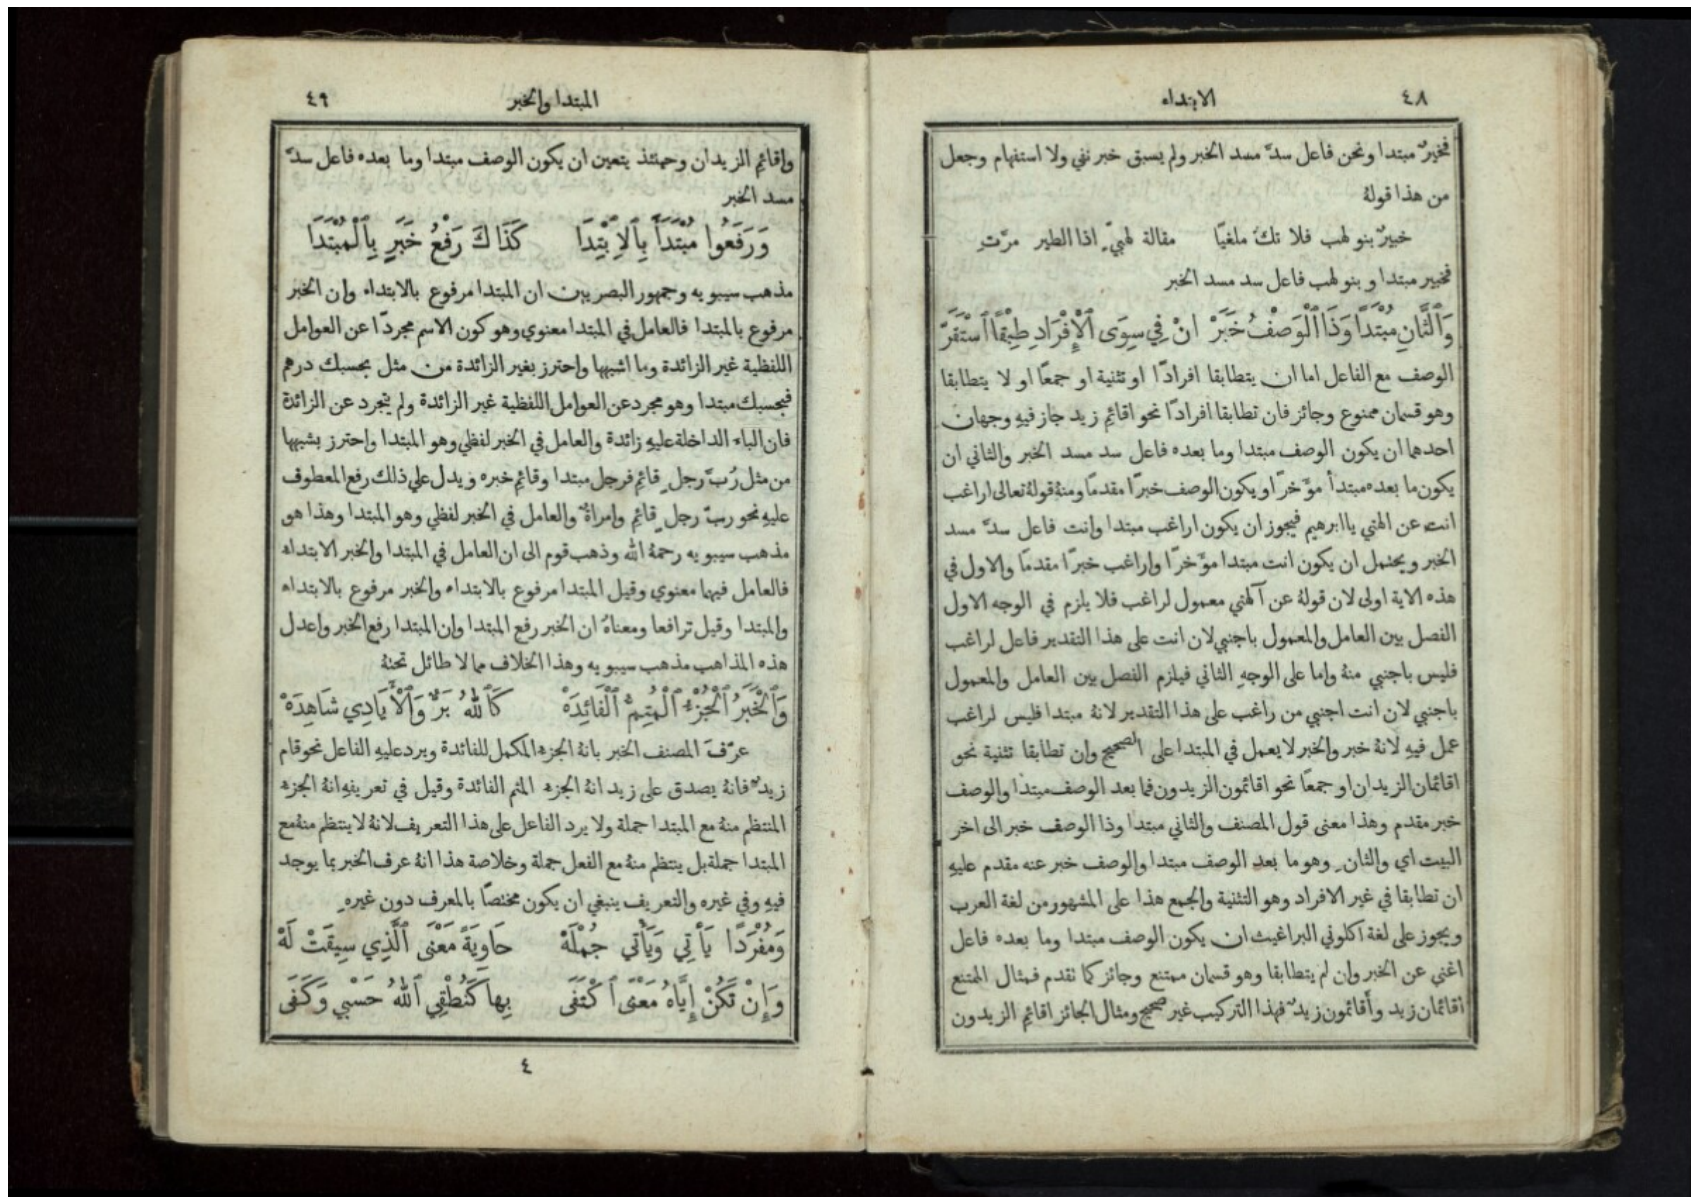 ٤٨
الابتداء
فخيرٌ مبتدا ونحن فاعل سدَّ مسد الخبر ولم يسبق خبر نفي ولا استفهام وجعل
من هذا قولهُ
خبيرٌ بنو لهب فلا تكُ ملغيًا مقالة لهبيّ اذا الطير مرَّتِ
فخبير مبتدا و بنو لهب فاعل سد مسد الخبر
وَٱلثَّانِ مُبْتَدًا وَذَا ٱلْوَصْفُ خَبَرْ انْ فِي سِوَى ٱلْإِفْرَادِ طِبْقًا ٱسْتَقَرّْ
الوصف مع الفاعل اما ان يتطابقا افرادًا او تثنية او جمعًا او لا يتطابقا
وهو قسمان ممنوع وجائز فان تطابقا افرادًا نحو اقائم زيد جاز فيهِ وجهان
احدهما ان يكون الوصف مبتدا وما بعده فاعل سد مسد الخبر والثاني ان
يكون ما بعده مبتدأ مؤَخرًا ويكون الوصف خبرًا مقدمًا ومنهُ قولهُ تعالى اراغب
انت عن الهتي ياابرهيم فيجوز ان يكون اراغب مبتدا وانت فاعل سدَّ مسد
الخبر ويحتمل ان يكون انت مبتدا مؤَخرًا واراغب خبرًا مقدمًا والاول في
هذه الاية اولى لان قولهُ عن آلهتي معمول لراغب فلا يلزم في الوجه الاول
الفصل بين العامل والمعمول باجنبي لان انت على هذا التقدير فاعل لراغب
فليس باجنبي منهُ واما على الوجهِ الثاني فيلزم الفصل بين العامل والمعمول
باجنبي لان انت اجنبي من راغب على هذا التقدير لانهُ مبتدا فليس لراغب
عمل فيهِ لانهُ خبر والخبر لا يعمل في المبتدا على الصحيح وان تطابقا تثنية نحو
اقائمان الزيدان او جمعًا نحو اقائمون الزيدون فما بعد الوصف مبتدا والوصف
خبر مقدم وهذا معنى قول المصنف والثاني مبتدا وذا الوصف خبر الى اخر
البيت اي والثانِ وهو ما بعد الوصف مبتدا والوصف خبر عنه مقدم عليهِ
ان تطابقا في غير الافراد وهو التثنية والجمع هذا على المشهور من لغة العرب
ويجوز على لغة اكلوني البراغيث ان يكون الوصف مبتدا وما بعده فاعل
اغنى عن الخبر وان لم يتطابقا وهو قسمان ممتنع وجائز كما تقدم فمثال الممتنع
اقائمان زيد وأقائمون زيدٌ فهذا التركيب غير صحيح ومثال الجائز اقائم الزيدون
المبتدا والخبر
٤٩
واقائم الزيدان وحينئذ يتعين ان يكون الوصف مبتدا وما بعده فاعل سدَّ
مسد الخبر
وَرَفَعُوا مُبْتَدَأً بِٱلاِبْتِدَا كَذَاكَ رَفْعُ خَبَرٍ بِٱلْمُبْتَدَا
مذهب سيبويه وجمهور البصريين ان المبتدا مرفوع بالابتداء وان الخبر
مرفوع بالمبتدا فالعامل في المبتدا معنوي وهو كون الاسم مجردًا عن العوامل
اللفظية غير الزائدة وما اشبهها واحترز بغير الزائدة من مثل بحسبك درهم
فبحسبك مبتدا وهو مجرد عن العوامل اللفظية غير الزائدة ولم يتجرد عن الزائدة
فان الباء الداخلة عليهِ زائدة والعامل في الخبر لفظي وهو المبتدا واحترز بشبهها
من مثل رُبَّ رجلٍ قائم فرجل مبتدا وقائم خبره ويدل على ذلك رفع المعطوف
عليهِ نحو ربَّ رجلٍ قائم وامراةٌ والعامل في الخبر لفظي وهو المبتدا وهذا هو
مذهب سيبويه رحمهُ الله وذهب قوم الى ان العامل في المبتدا والخبر الابتداء
فالعامل فيهما معنوي وقيل المبتدا مرفوع بالابتداء والخبر مرفوع بالابتداء
والمبتدا وقيل ترافعا ومعناهُ ان الخبر رفع المبتدا وان المبتدا رفع الخبر واعدل
هذه المذاهب مذهب سيبويه وهذا الخلاف مما لا طائل تحتهُ
وَٱلْخَبَرُ ٱلْجُزْءُ ٱلْمُتِمُّ ٱلْفَائِدَهْ كَٱللهُ بَرٌّ وَٱلْأَيَادِي شَاهِدَهْ
عرَّفَ المصنف الخبر بانهُ الجزء المكمل للفائدة ويرد عليهِ الفاعل نحو قام
زيدٌ فانهُ يصدق على زيد انهُ الجزء المتم الفائدة وقيل في تعريفهِ انهُ الجزء
المنتظم منهُ مع المبتدا جملة ولا يرد الفاعل على هذا التعريف لانهُ لا ينتظم منهُ مع
المبتدا جملة بل ينتظم منهُ مع الفعل جملة وخلاصة هذا انهُ عرف الخبر بما يوجد
فيهِ وفي غيره والتعريف ينبغي ان يكون مختصًا بالمعرف دون غيرهِ
وَمُفْرَدًا يَأْتِي وَيَأْتي جُمْلَهْ حَاوِيَةً مَعْنَى ٱلَّذِي سِيقَتْ لَهْ
وَإِنْ تَكُنْ إِيَّاهُ مَعْنًى ٱكْتَفَى بِهَا كَنُطْقِي ٱللهُ حَسْبِي وَكَفَى
٤